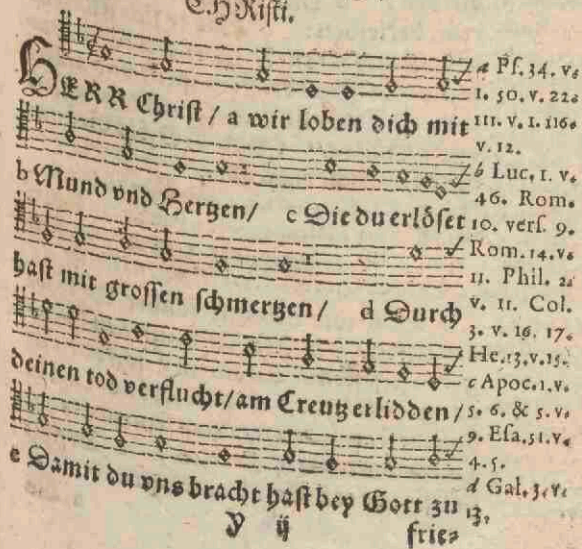 CHRisti.
HERR Christ / a wir loben dich mit
b Mund vnd Hertzen / c Die du erlöset
hast mit grossen schmertzen / d Durch
deinen tod verflucht / am Creutz erlidden /
e Damit du vns bracht hast bey Gott zu
y ij frie⸗
a Ps. 34. v.
1. 50. v. 22.
111. v. 1. 116.
v. 12.
b Luc. 1. v.
46. Rom.
10. vers. 9.
Rom. 14. v.
11. Phil. 2.
v. 11. Col.
3. v. 16. 17.
He. 13. v. 15.
c Apoc. 1. v.
5. 6. & 5. v.
9. Esa. 51. v.
4. 5.
d Gal. 3. v.
13.